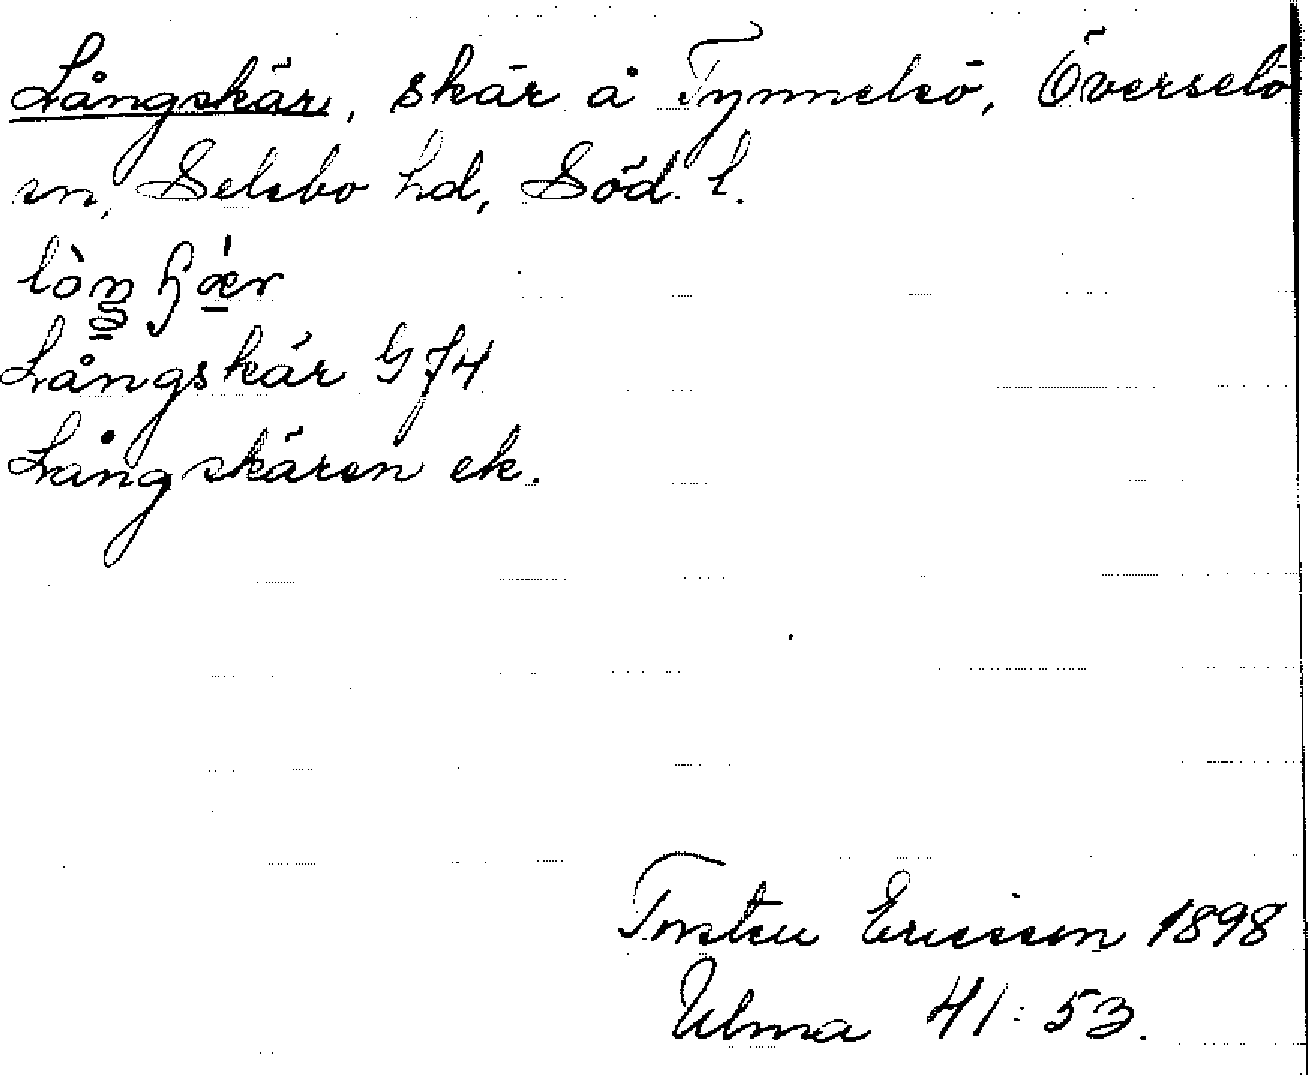 Långskär, skär å Tynnelsö, Överselö
sn, Selebo hd, Söd. l.
Långskär GJ4
Långskären ek.
Torsten Ericsson 1898
Ulma 41:53.